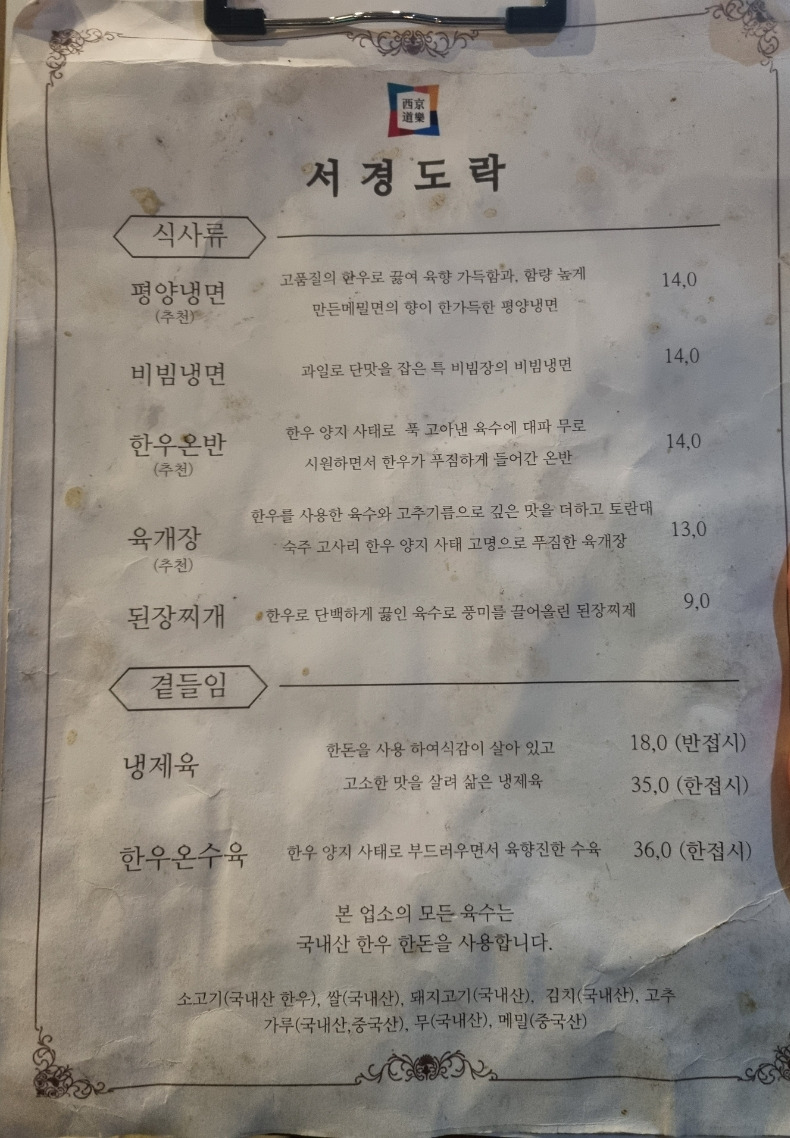 西京
道樂
서경도락
식사류
평양냉면
(추천)
고품질의 한우로 끓여 육향 가득함과, 함량 높게
만든메밀면의 향이 한가득한 평양냉면
14,0
비빔냉면
과일로 단맛을 잡은 특 비빔장의 비빔냉면
14,0
한우온반
(추천)
한우 양지 사태로 푹 고아낸 육수에 대파 무로
시원하면서 한우가 푸짐하게 들어간 온반
14,0
육개장
(추천)
한우를 사용한 육수와 고추기름으로 깊은 맛을 더하고 토란대
숙주 고사리 한우 양지 사태 고명으로 푸짐한 육개장
13,0
된장찌개
한우로 단백하게 끓인 육수로 풍미를 끌어올린 된장찌게
9,0
곁들임
냉제육
한돈을 사용 하여식감이 살아 있고
고소한 맛을 살려 삶은 냉제육
18,0 (반접시)
35,0 (한접시)
한우온수육
한우 양지 사태로 부드러우면서 육향진한 수육
36,0 (한접시)
본 업소의 모든 육수는
국내산 한우 한돈을 사용합니다.
소고기(국내산 한우), 쌀(국내산), 돼지고기(국내산), 김치(국내산), 고추
가루(국내산,중국산), 무(국내산), 메밀(중국산)